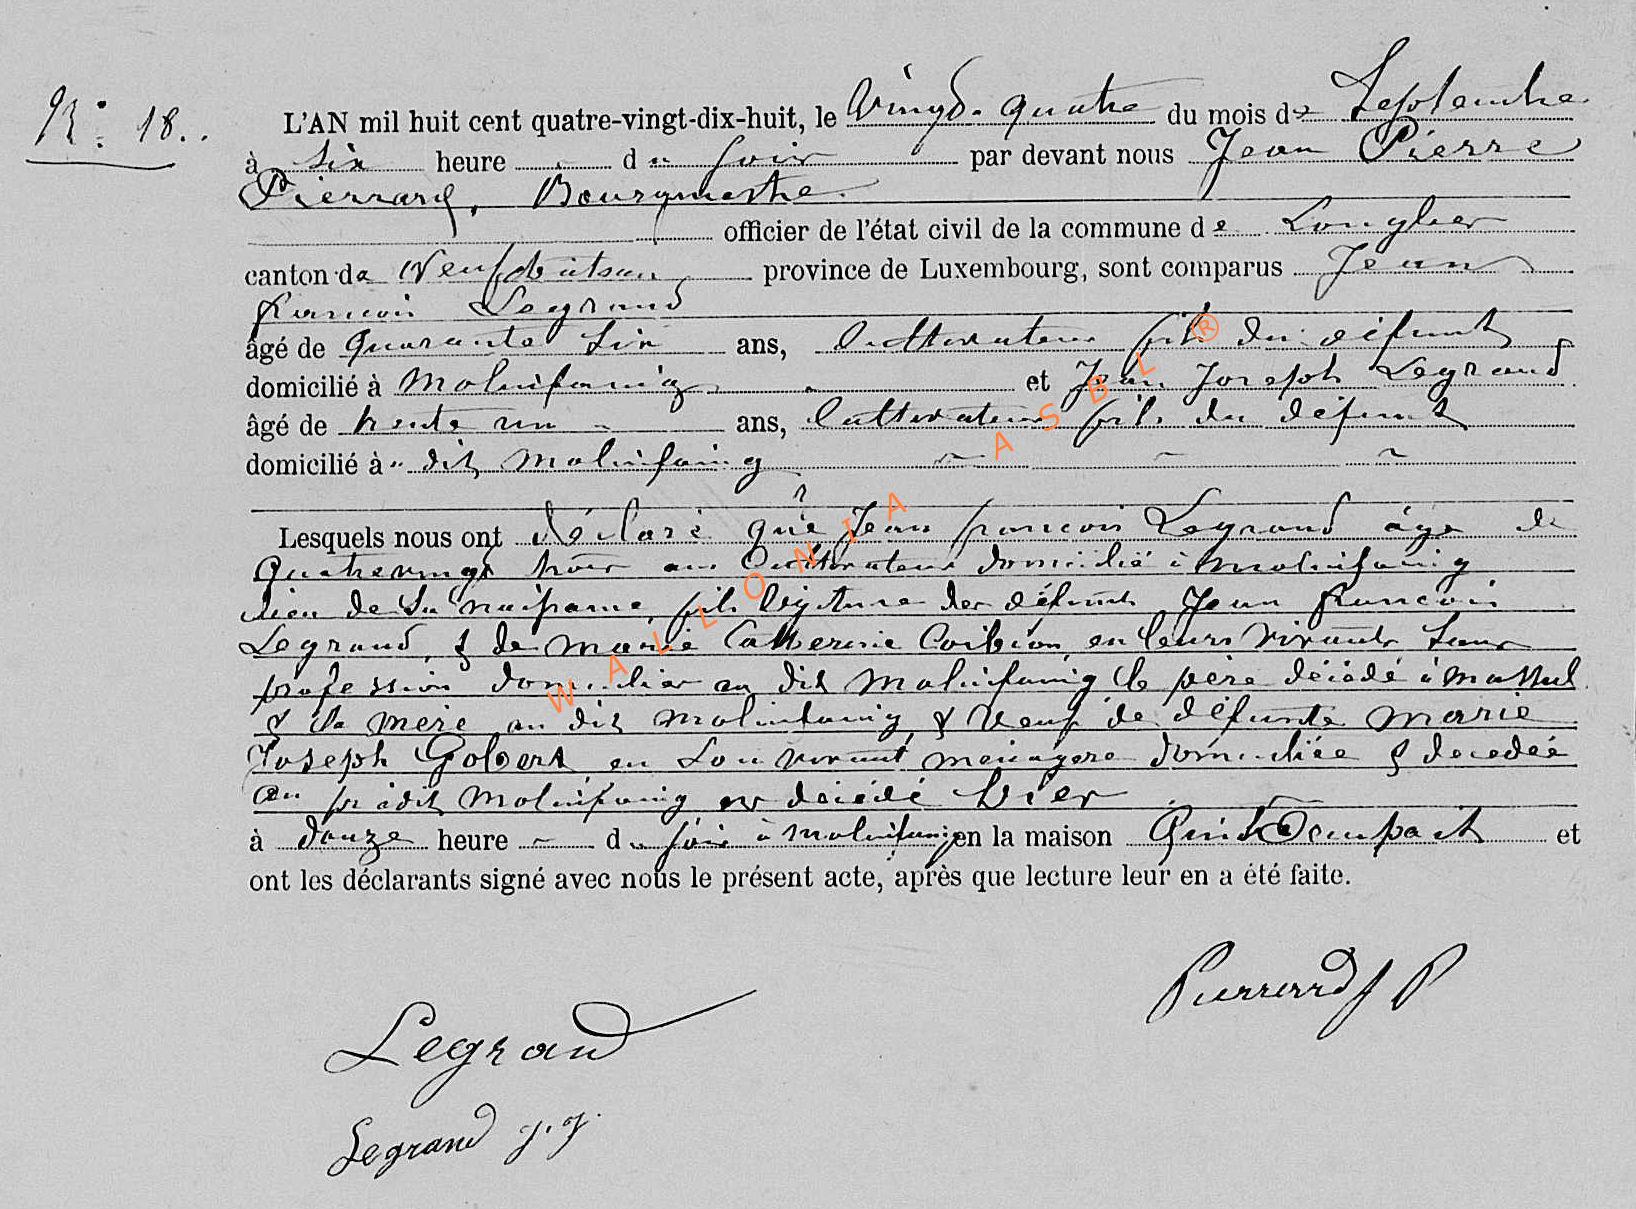 N° 18.
L'AN mil huit cent quatre-vingt-dix-huit, le Vingt-quatre du mois de Septembre
à six heure du soir par devant nous Jean Pierre
Pierrard, Bourgmestre
officier de l'état civil de la commune de Longlier
canton de Neufchateau province de Luxembourg, sont comparus Jean
francois Legrand
âgé de quarante six ans, Cultivateur fils du défunt
domicilié à Molinfaing et Jean Joseph Legrand
âgé de trente un ans, Cultivateur fils du défunt
domicilié à dit Molinfaing
Lesquels nous ont déclaré que Jean francois Legrand âgé de
Quatrevingt trois ans Cultivateur domicilié à Molinfaing
lieu de sa naissance, fils légitime des défunts Jean francois
Legrand, & de Marie Catherine Coibion, en leurs vivants sans
profession domiciliés au dit Molinfaing le père décédé à Massul
& la mère au dit Molinfaing, & Veuf de défunte Marie
Joseph Gobert en son vivant ménagère domiciliée & décédée
au prédit Molinfaing est décédé hier
à douze heure du soir à Molinfaing en la maison qu'il occupait et
ont les déclarants signé avec nous le présent acte, après que lecture leur en a été faite.
Pierrard J P
Legrand
Legrand J. J.
WALLONIA ASBL ®